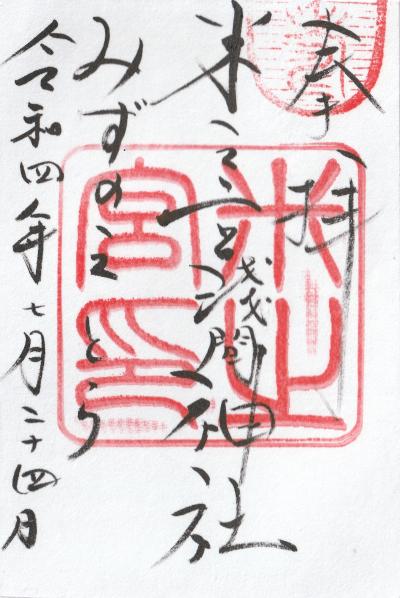 奉拝
米之宮淺間神社
みずのえとら
令和四年七月二十四日
米之
宮印